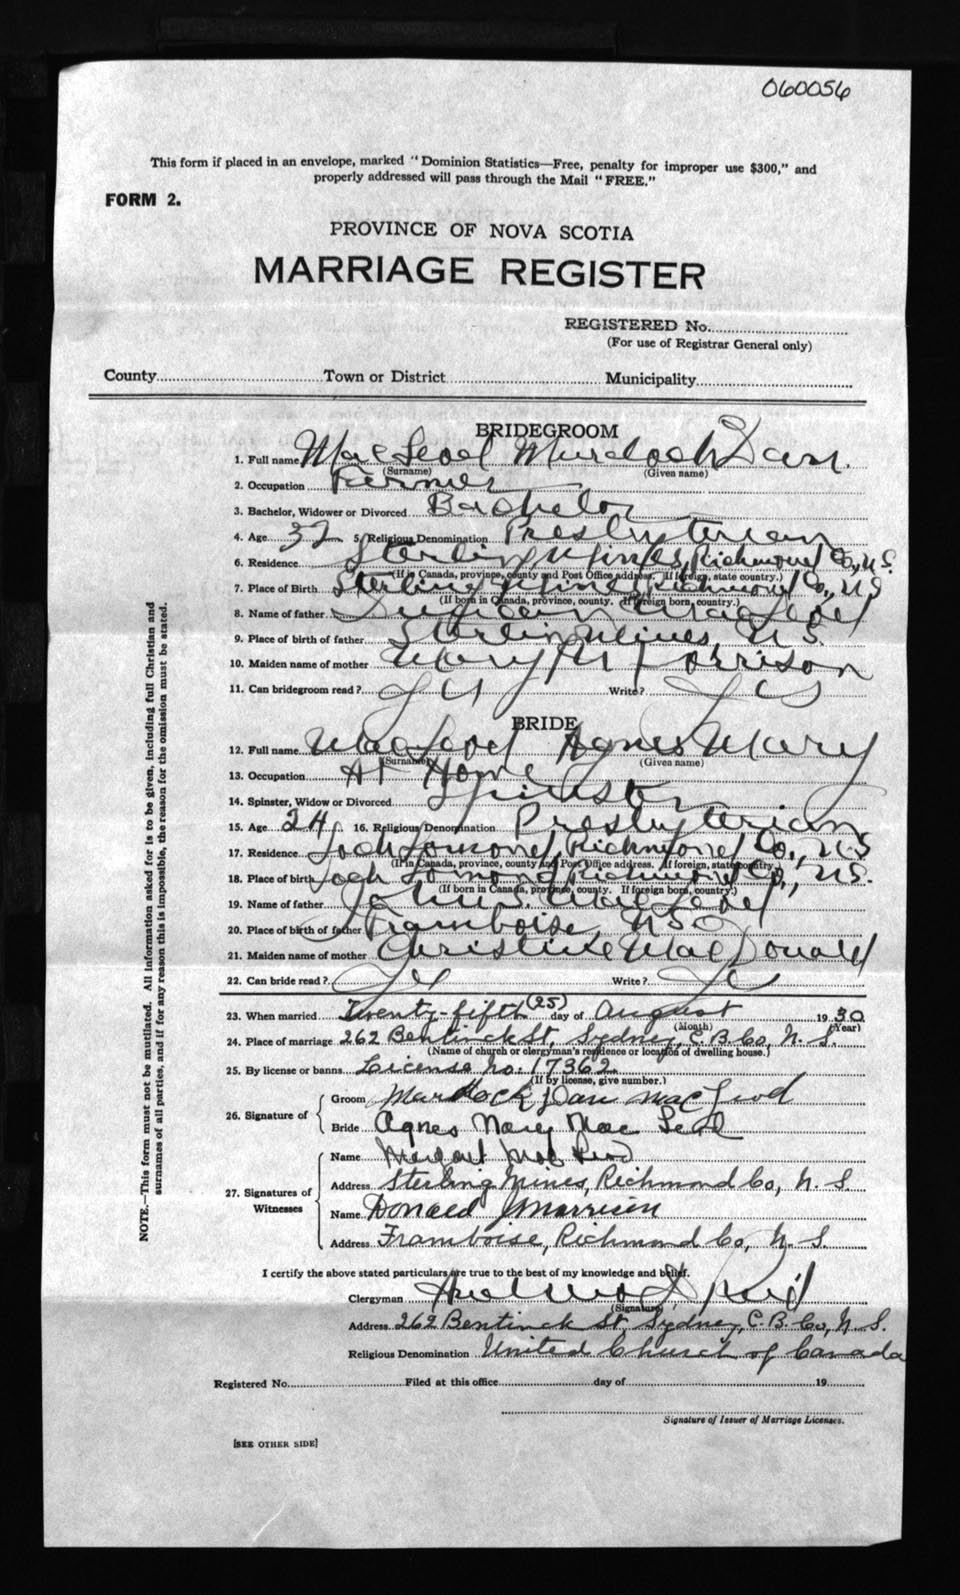 060056
This form if placed in an envelope, marked "Dominion Statistics—Free, penalty for improper use $300," and
properly addressed will pass through the Mail "FREE."
FORM 2.
PROVINCE OF NOVA SCOTIA
MARRIAGE REGISTER
REGISTERED No.
(For use of Registrar General only)
County Town or District Municipality
BRIDEGROOM
1. Full name MacLeod Murdoch Dan.
(Surname) (Given name)
2. Occupation Farmer
3. Bachelor, Widower or Divorced Bachelor
4. Age 32 5. Religious Denomination Presbyterian
6. Residence Sterling Mines, Richmond Co., N.S.
(If in Canada, province, county and Post Office address. If foreign, state country.)
7. Place of Birth Sterling Mines, Richmond Co., N.S
(If born in Canada, province, county. If foreign born, country.)
8. Name of father MacLeod
9. Place of birth of father Sterling Mines, N.S.
10. Maiden name of mother Mary M Morrison
11. Can bridegroom read? Yes Write? Yes
BRIDE
12. Full name MacLeod Agnes Mary
(Surname) (Given name)
13. Occupation At Home
14. Spinster, Widow or Divorced Spinster
15. Age 24 16. Religious Denomination Presbyterian
17. Residence Loch Lomond, Richmond Co., N.S
(If in Canada, province, county and Post Office address. If foreign, state country.)
18. Place of birth Loch Lomond Richmond Co., N.S.
(If born in Canada, province, county. If foreign born, country.)
19. Name of father John MacLeod
20. Place of birth of father Framboise, N.S
21. Maiden name of mother Christine MacDonald
22. Can bride read? Yes Write? Yes
23. When married Twenty-fifth (25) day of August 1930
(Month) (Year)
24. Place of marriage 262 Bentinck St, Sydney, C.B.Co, N.S.
(Name of church or clergyman's residence or location of dwelling house.)
25. By license or banns License No: 17362
(If by license, give number.)
26. Signature of
Groom Murdock Dan MacLeod
Bride Agnes Mary Mac Leod
27. Signatures of Witnesses
Name Margaret MacLeod
Address Sterling Mines, Richmond Co, N.S.
Name Donald J Morrison
Address Framboise, Richmond Co, N.S.
I certify the above stated particulars are true to the best of my knowledge and belief.
Clergyman Reid
(Signature)
Address 262 Bentinck St Sydney, C.B.Co, N.S.
Religious Denomination United Church of Canada
Registered No. Filed at this office day of 19
Signature of Issuer of Marriage Licenses.
[SEE OTHER SIDE]
NOTE.—This form must not be mutilated. All information asked for is to be given, including full Christian and
surnames of all parties, and if for any reason this is impossible, the reason for the omission must be stated.